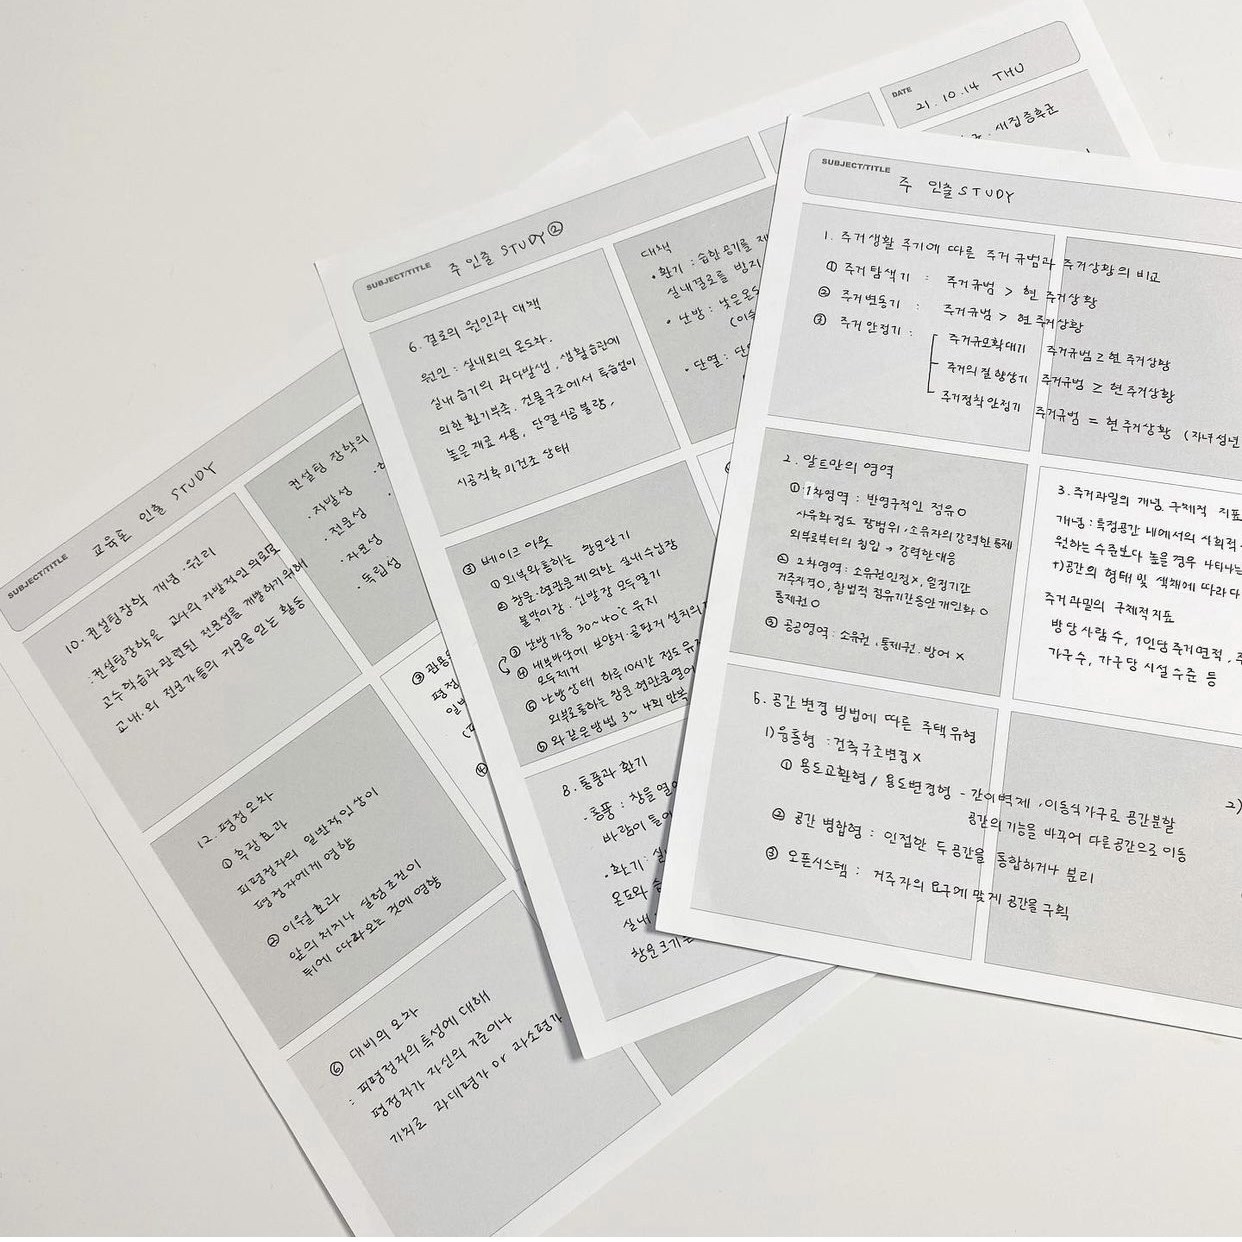 SUBJECT/TITLE
주 인출 STUDY
1. 주거생활 주기에 따른 주거규범과 주거상황의 비교
① 주거탐색기 : 주거규범 > 현 주거상황
② 주거변동기 : 주거규범 > 현 주거상황
③ 주거안정기 :
주거규모확대기 주거규범 ≥ 현 주거상황
주거의 질 향상기 주거규범 ≥ 현주거상황
주거정착안정기 주거규범 = 현주거상황 (자녀성년
2. 알트만의 영역
① 1차영역 : 반영구적인 점유O
사유화정도 광범위, 소유자의 강력한 통제
외부로부터의 침입 → 강력한 대응
② 2차영역 : 소유권인정X, 일정기간
거주자격O, 합법적 점유기간동안 개인화O
통제권O
③ 공공영역 : 소유권, 통제권, 방어 X
3. 주거과밀의 개념, 구체적 지표
개념 : 특정공간 내에서의 사회적
원하는 수준보다 높을 경우 나타나는
+)공간의 형태 및 색채에 따라 다
주거과밀의 구체적지표
방당 사람 수, 1인당 주거면적,
가구수, 가구당 시설수준 등
5. 공간 변경 방법에 따른 주택유형
1) 융통형 : 건축구조변경 X
① 용도교환형 / 용도변경형 - 간이벽체, 이동식가구로 공간분할
공간의 기능을 바꾸어 다른공간으로 이동
② 공간 병합형 : 인접한 두 공간을 통합하거나 분리
③ 오픈시스템 : 거주자의 요구에 맞게 공간을 구획
2)
DATE
21. 10. 14 THU
새집증후군
SUBJECT/TITLE
주 인출 STUDY②
6. 결로의 원인과 대책
원인 : 실내외의 온도차.
실내 습기의 과다발생, 생활습관에
의한 환기부족, 건물구조에서 투습성이
높은 재료 사용, 단열시공불량,
시공직후 미건조 상태
대책
• 환기 : 습한 공기를
실내결로를 방지
• 난방 : 낮은온도
• 단열 :
③ 베이크 아웃
① 외부와 통하는 창문닫기
② 창문·현관문 제외한 실내수납장
붙박이장, 신발장 모두열기
③ 난방가동 30~40℃ 유지
④ 내부바닥에 보양지·골판지 설치
모두제거
⑤ 난방상태 하루 10시간 정도
외부로통하는 창문·현관문열어
⑥ 와 같은방법 3~4회 반복
8. 통풍과 환기
• 통풍 : 창을 열
바람이 들어
• 환기 :
온도와
실내
창문크기
SUBJECT/TITLE
교육론 인출 STUDY
10. 컨설팅장학 개념·원리
: 컨설팅장학은 교사의 자발적인 의뢰로
교수학습과 관련된 전문성을 개발하기위해
교내·외 전문가들의 자문을 얻는 활동
컨설팅 장학의
· 자발성
· 전문성
· 자문성
· 독립성
12. 평정오차
① 후광효과
피평정자의 일반적인상이
평정자에게 영향
② 이월효과
앞의 처치나 실험조건이
뒤에 따라오는 것에 영향
③ 관용
평정
④
⑥ 대비의 오차
: 피평정자의 특성에 대해
평정자가 자신의 기준이나
가치로 과대평가 or 과소평가